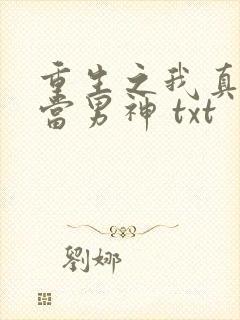 重生之我真
当男神 txt
刘娜